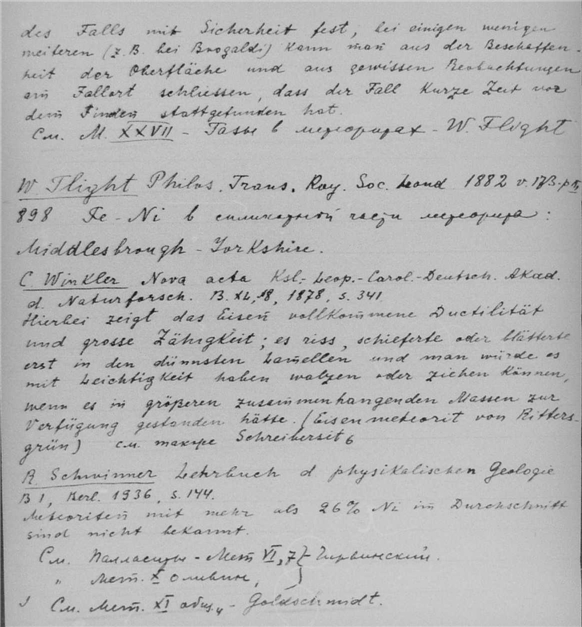 des Falls mit Sicherheit fest, bei einigen wenigen
weiteren (z. B. bei Brogaldi) kann man aus der Beschaffen-
heit der Oberfläche und aus gewissen Beobachtungen
am Fallort schliessen, dass der Fall kurze Zeit vor
dem Finden stattgefunden hat.
См. М. XXVII - Газы в метеоритах - W. Flight
W Flight Philos. Trans. Roy. Soc. Lond 1882 v. 173
898 Fe-Ni в силикатной части метеорита:
Middlesbrough - Yorkshire.
C. Winkler Nova acta Ksl.-Leop.-Carol.-Deutsch. Akad.
d. Naturforsch. B. XL, 18, 1878, S. 341
Hierbei zeigt das Eisen vollkommene Ductilität
und grosse Zähigkeit; es riss, schieferte oder blätterte
erst in den dünnsten Lamellen und man würde es
mit Leichtigkeit haben walzen oder ziehen können,
wenn es in größeren zusammenhangenden Massen zur
Verfügung gestanden hätte. (Eisenmeteorit von Ritters-
grün) см. также Schreibersit
R. Schwinner Lehrbuch d physikalischen Geologie
B I, Berl. 1936, S. 144.
Meteoriten mit mehr als 26% Ni im Durchschnitt
sind nicht bekannt.
См. Палласиты - Мет VI, 7 - Чирвинский.
" Мет. X оливин,
См. Мет. XI - Goldschmidt.